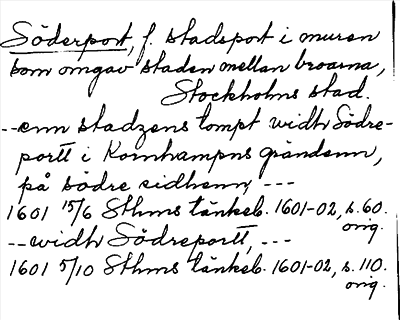 Söderport, f. stadsport i muren
som omgav staden mellan broarna,
Stockholms stad.
--enn stadzens tompt widh Södre-
portt i Kornhampns grändenn,
på södre sidhenn, ---
1601 15/6 Sthms tänkeb. 1601-02, s. 60.
orig.
--widh Södreportt, ---
1601 5/10 Sthms tänkeb. 1601-02, s. 110.
orig.